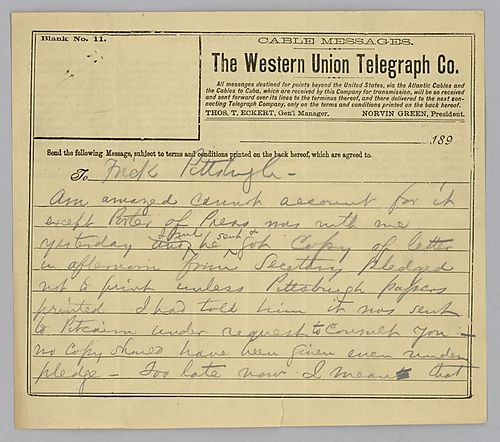 Blank No. 11.
CABLE MESSAGES.
The Western Union Telegraph Co.
All messages destined for points beyond the United States, via the Atlantic Cables and
the Cables to Cuba, which are received by this Company for transmission, will be so received
and sent forward over its lines to the terminus thereof, and there delivered to the next con-
necting Telegraph Company, only on the terms and conditions printed on the back hereof.
THOS. T. ECKERT, Gen'l Manager. NORVIN GREEN, President.
189
Send the following Message, subject to terms and conditions printed on the back hereof, which are agreed to.
To Frick Pittsburgh -
Am amazed cannot account for it
except Porter of Press was with me
yesterday he sent & got Copy of letter
in afternoon from Secretary pledged
not to print unless Pittsburgh papers
printed I had told him it was sent
to Pitcairn under request to Consult You -
no Copy should have been given even under
pledge - Too late now I meant that